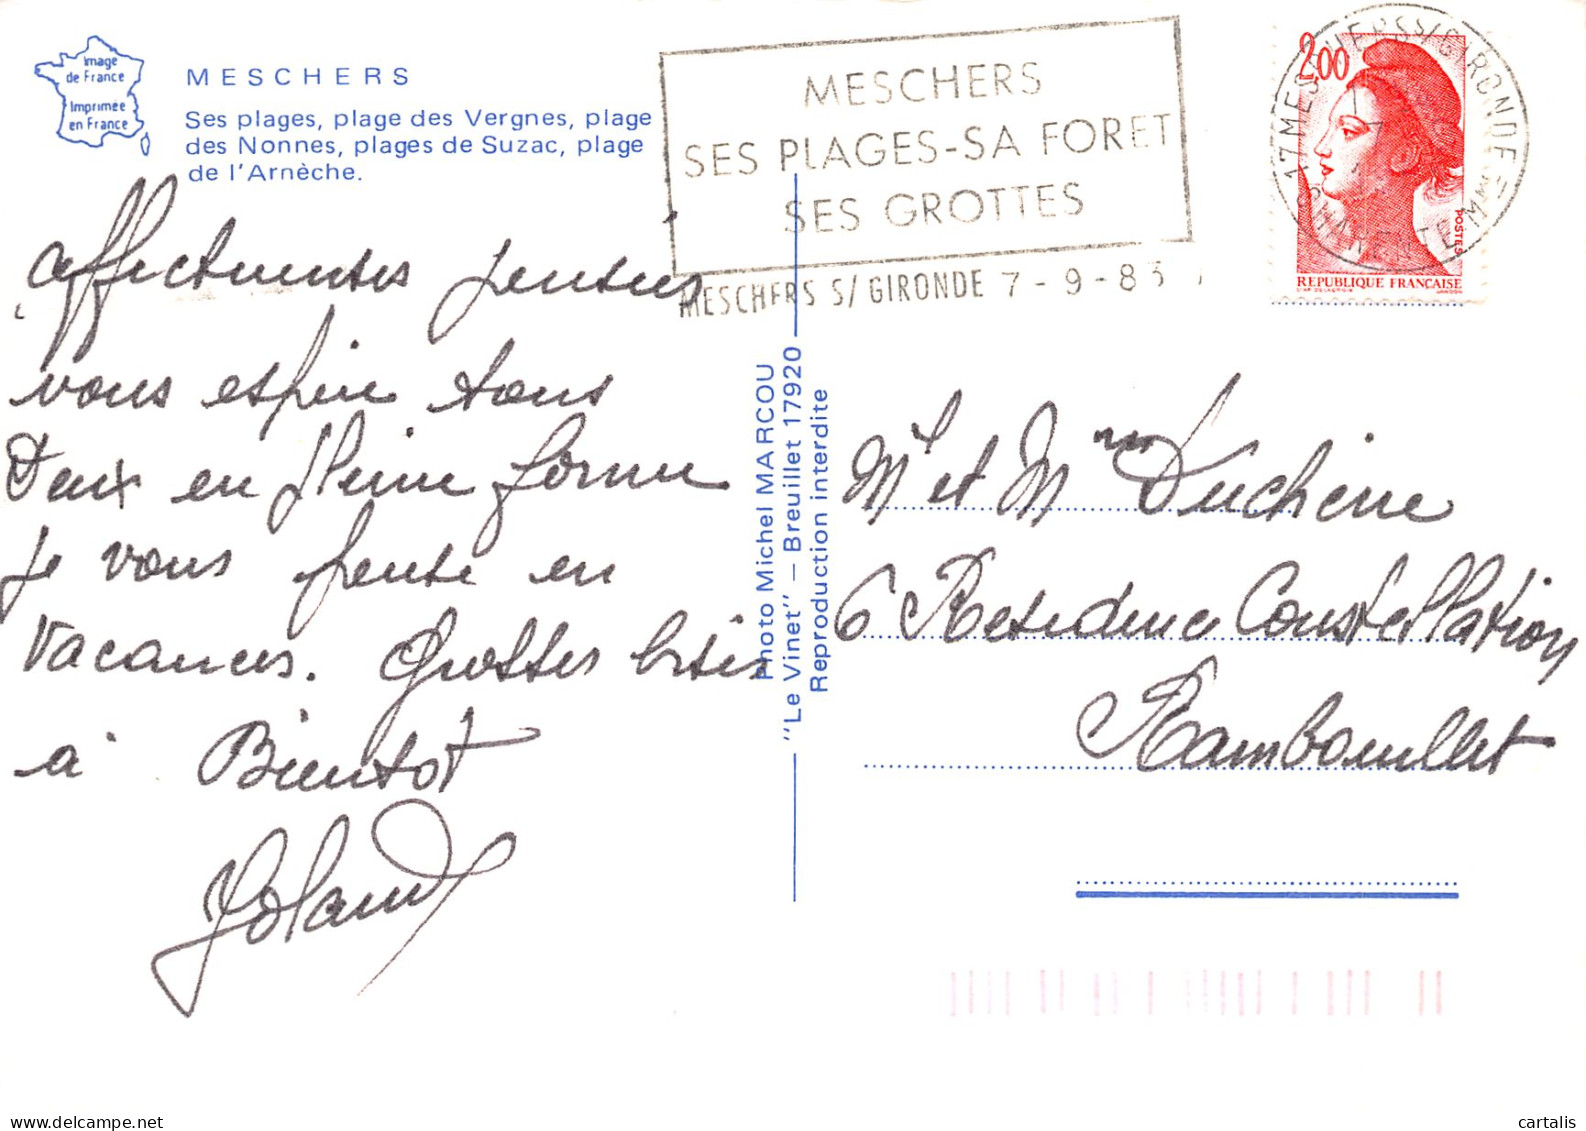 Image
de France
Imprimée
en France
MESCHERS
Ses plages, plage des Vergnes, plage
des Nonnes, plages de Suzac, plage
de l'Arnèche.
MESCHERS
SES PLAGES-SA FORET
SES GROTTES
MESCHERS S/GIRONDE 7-9-83
17 MESCHERS S/GIRONDE
CHARENTE MME
2,00
POSTES
REPUBLIQUE FRANÇAISE
affectueuses pensées
vous espère tous
Deux en pleine forme
je vous pense en
Vacances. Grosses bises
à Bientôt
Yoland
Photo Michel MARCOU
"Le Vinet" – Breuillet 17920
Reproduction interdite
Mr et Mme Duchene
6 Residence Constellation
Rambouillet
cartalis